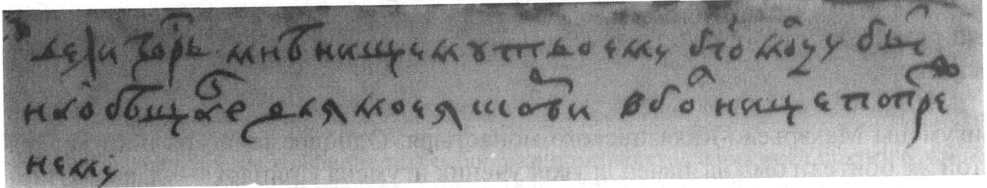 вели гдрь мнѣ нищему твоему бгомолцу быт
на обѣщане для моея скорби в болнице по преж
нему